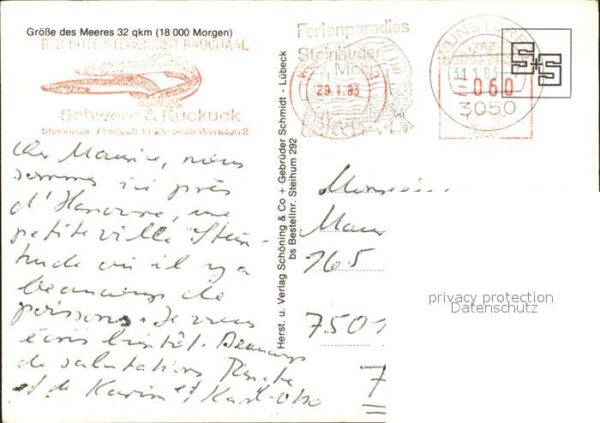 Größe des Meeres 32 qkm (18 000 Morgen)
DER ECHTE STEINHUDER RAUCHAAL
Schweer & Kuckuck
Steinhude · Postfach 11 23 · 3050 Wunstorf 2
Ferienparadies
Steinhuder
Meer
29.1.83
WUNSTORF
31.1.83
060
3050
Cher Maurice, nous
sommes ici près
d'Hanovre, une
petite ville Stein-
hude où il y a
beaucoup de
poissons. Je vous
écris bientôt. Beaucoup
de salutations
et de Karin et Karl-Otto
Herst. u. Verlag Schöning & Co + Gebrüder Schmidt - Lübeck
bs Bestellnr. Steihum 292
Monsieur
Mau
165
7501
privacy protection
Datenschutz